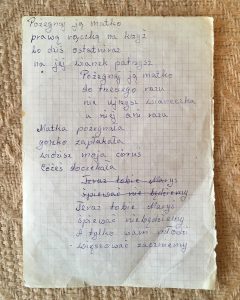 Pożegnaj ją matko
prawą rączką na krzyż
bo dziś ostatni raz
na jej wianek patrzysz
Pożegnaj ją matko
do trzeciego razu
nie ujrzysz wianeczka
u niej ani razu
Matka pożegnała
gorzko zapłakała
widzisz moja córuś
Coześ doczekała
Teraz tobie Maryś
Śpiewać nie będziemy
Teraz tobie Maryś
śpiewać niebędziemy
A tylko wam młodzi
winszować zaczniemy